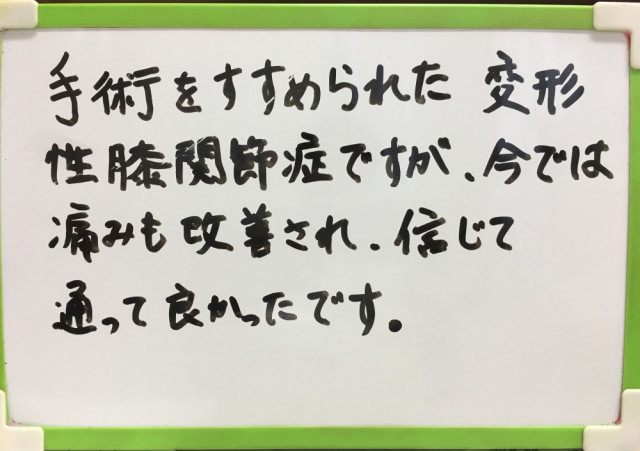 手術をすすめられた 変形
性膝関節症ですが、今では
痛みも改善され、信じて
通って良かったです。